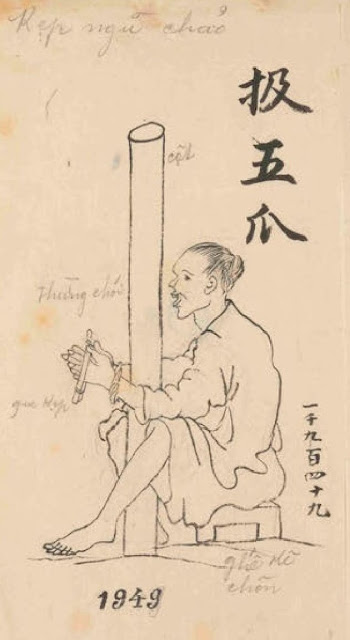 Kẹp ngũ chảo
扱五爪
cột
que kẹp
一千九百四十九
ghế để
1949